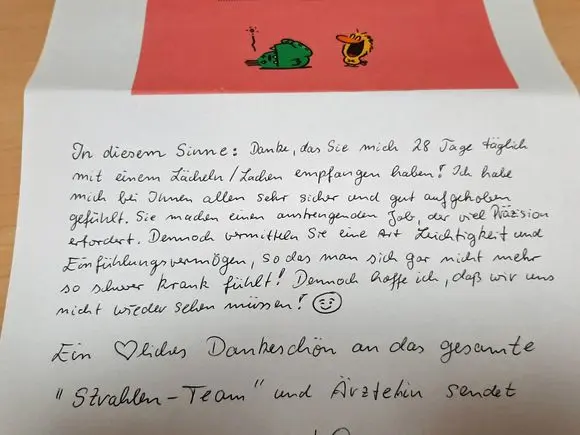 In diesem Sinne: Danke, das Sie mich 28 Tage täglich
mit einem Lächeln/Lachen empfangen haben! Ich habe
mich bei Ihnen allen sehr sicher und gut aufgehoben
gefühlt. Sie machen einen anstrengenden Job, der viel Präzision
erfordert. Dennoch vermitteln Sie eine Art Leichtigkeit und
Einfühlungsvermögen, so das man sich gar nicht mehr
so schwer krank fühlt! Dennoch hoffe ich, daß wir uns
nicht wieder sehen müssen! ☺
Ein ♡liches Dankeschön an das gesamte
"Strahlen-Team" und Ärztehin sendet